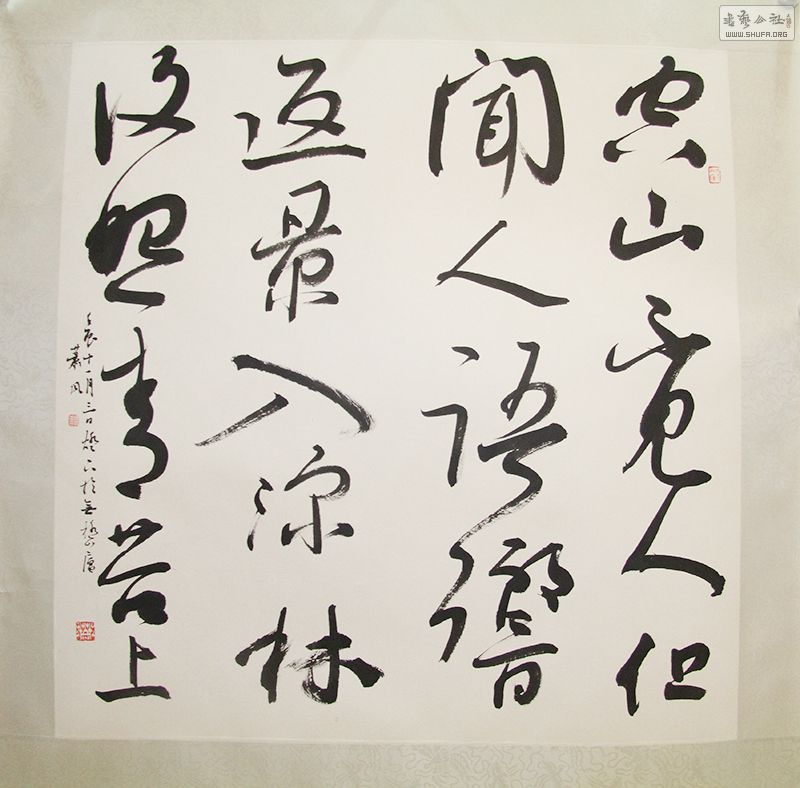 空山不見人但
聞人語響
返景入深林
復照青苔上
壬辰十一月三日
書藝公社
WWW.SHUFA.ORG